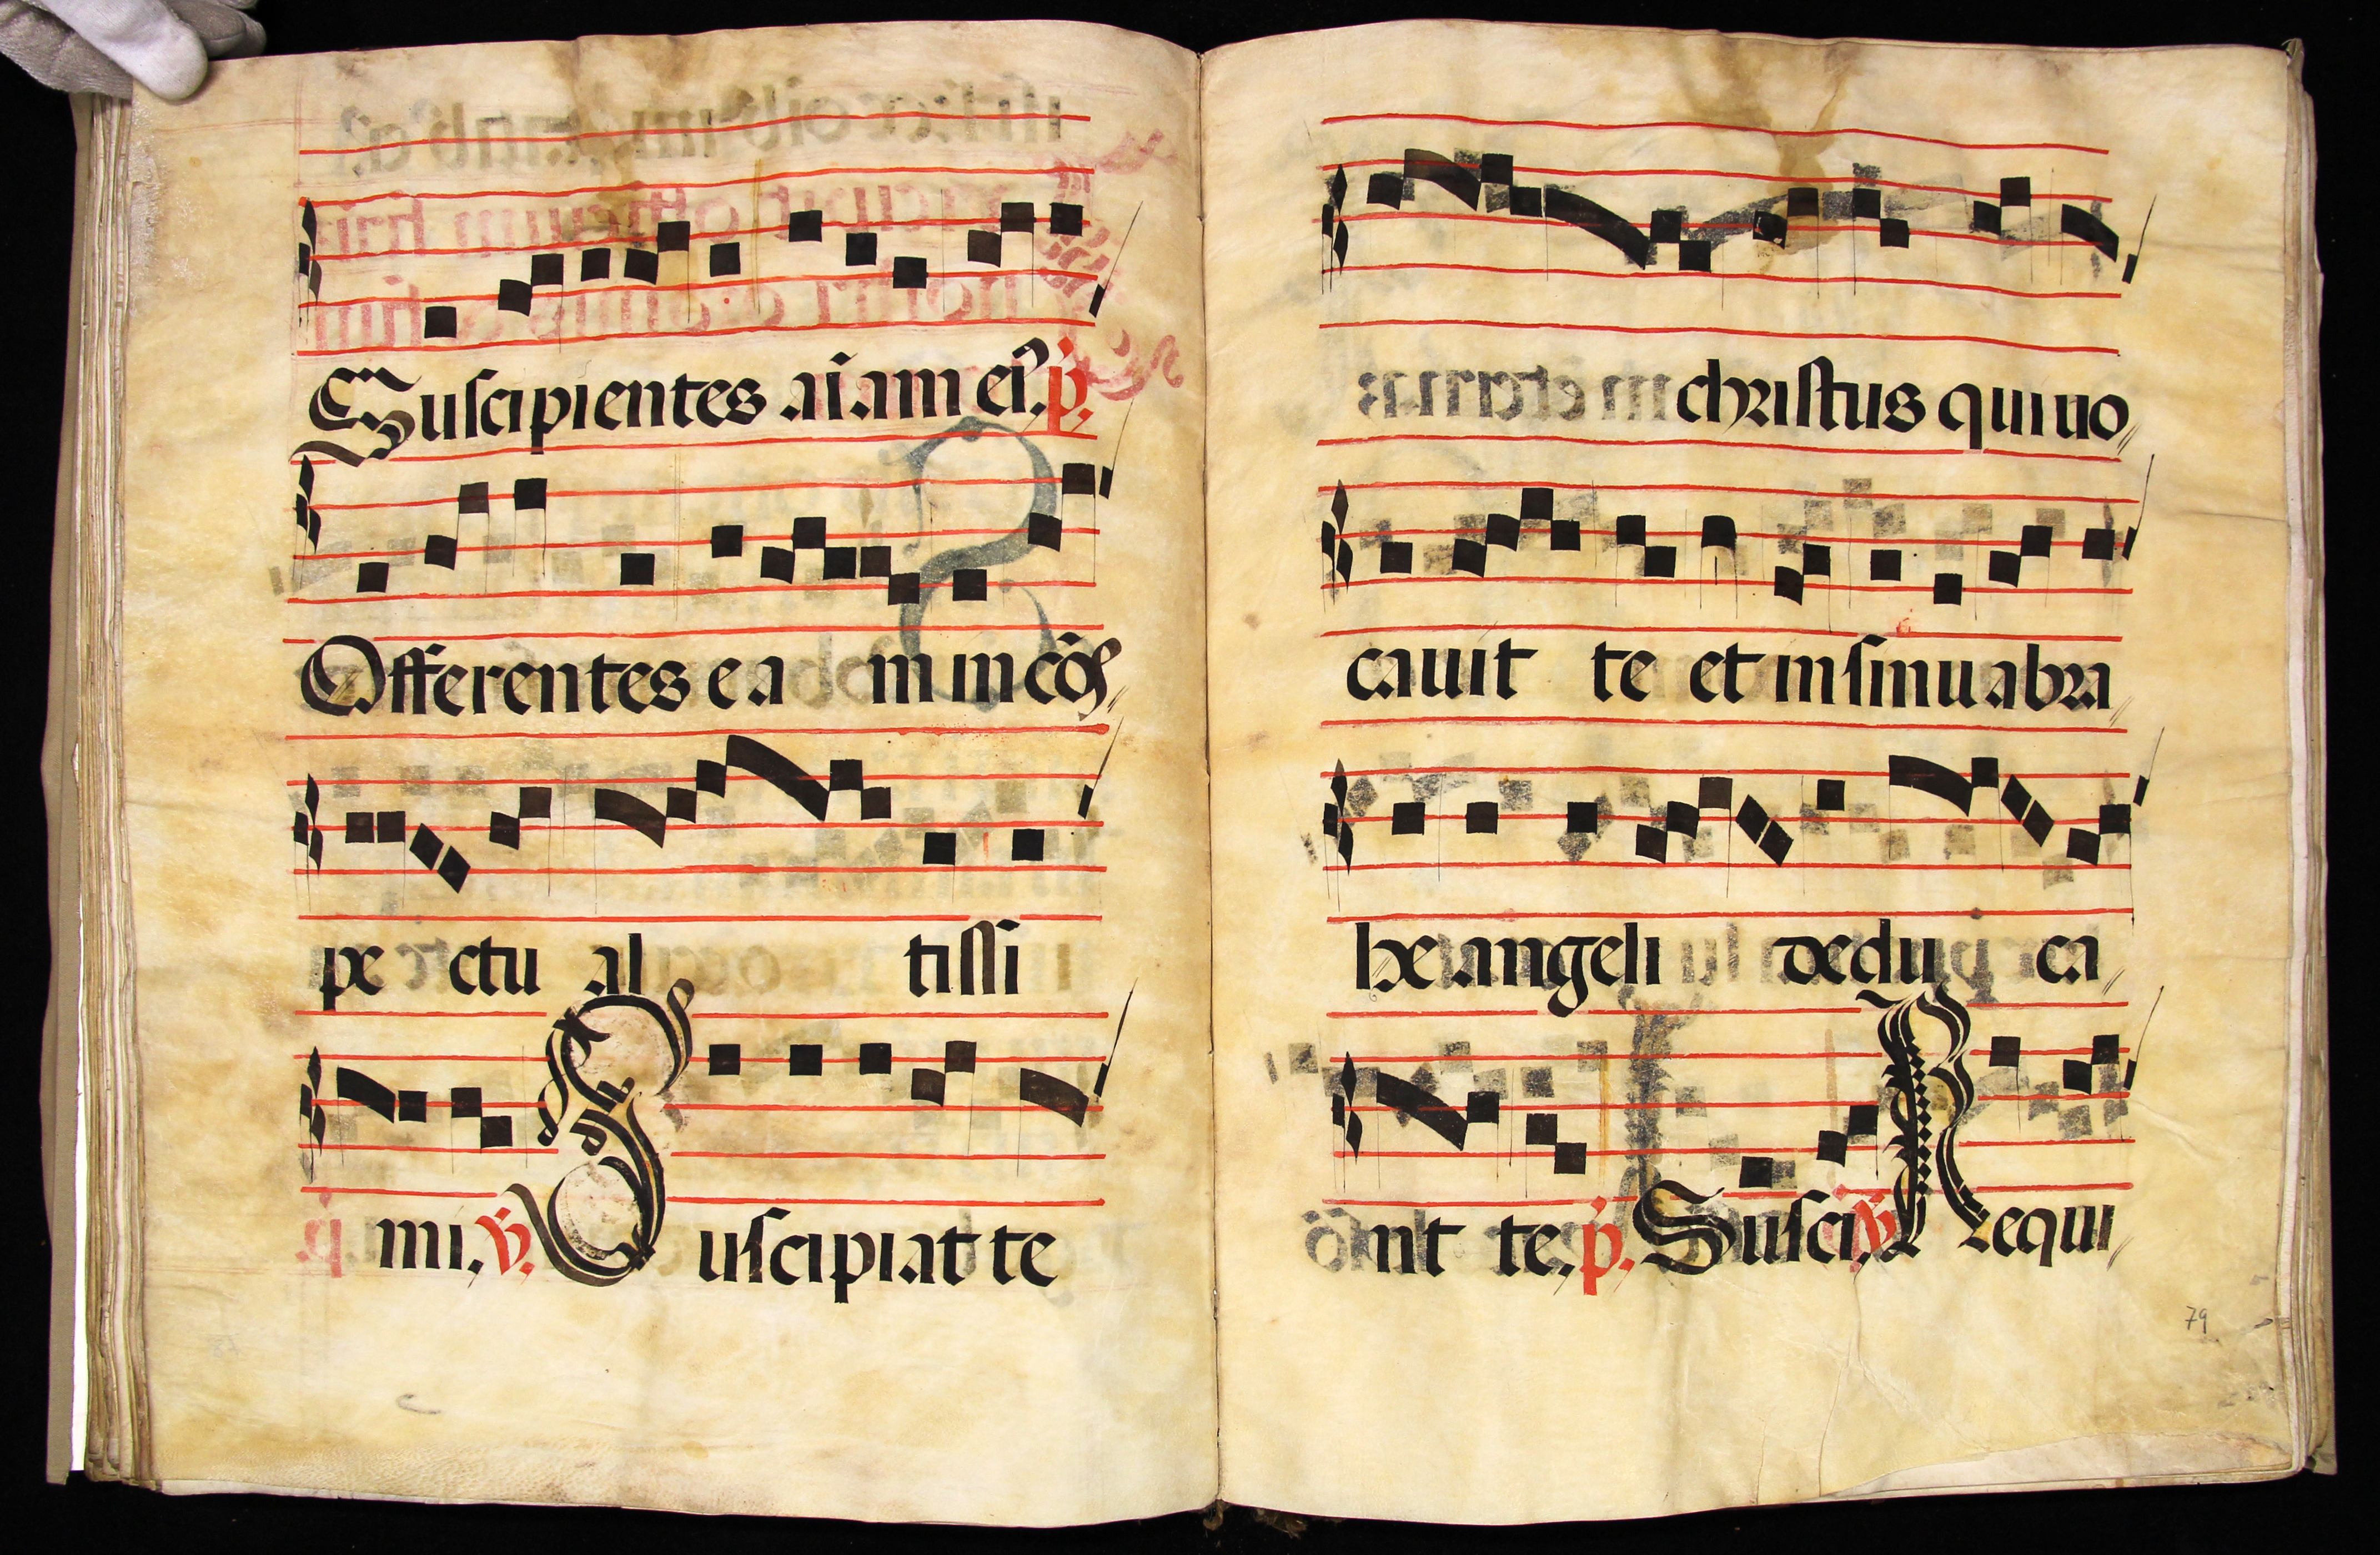 Suscipientes aīam eiꝰ. p̄.
Offerentes ea m in cōs
pe ctu al tissi
mi. v̄. Suscipiat te
christus qui uo
cauit te et in sinu abra
he angeli dedu ca
nt te. p̄. Susci. v̄. Requi
79